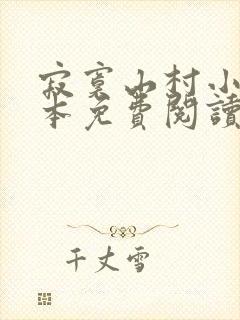 寂寞山村小
本免費閱讀
千丈雪